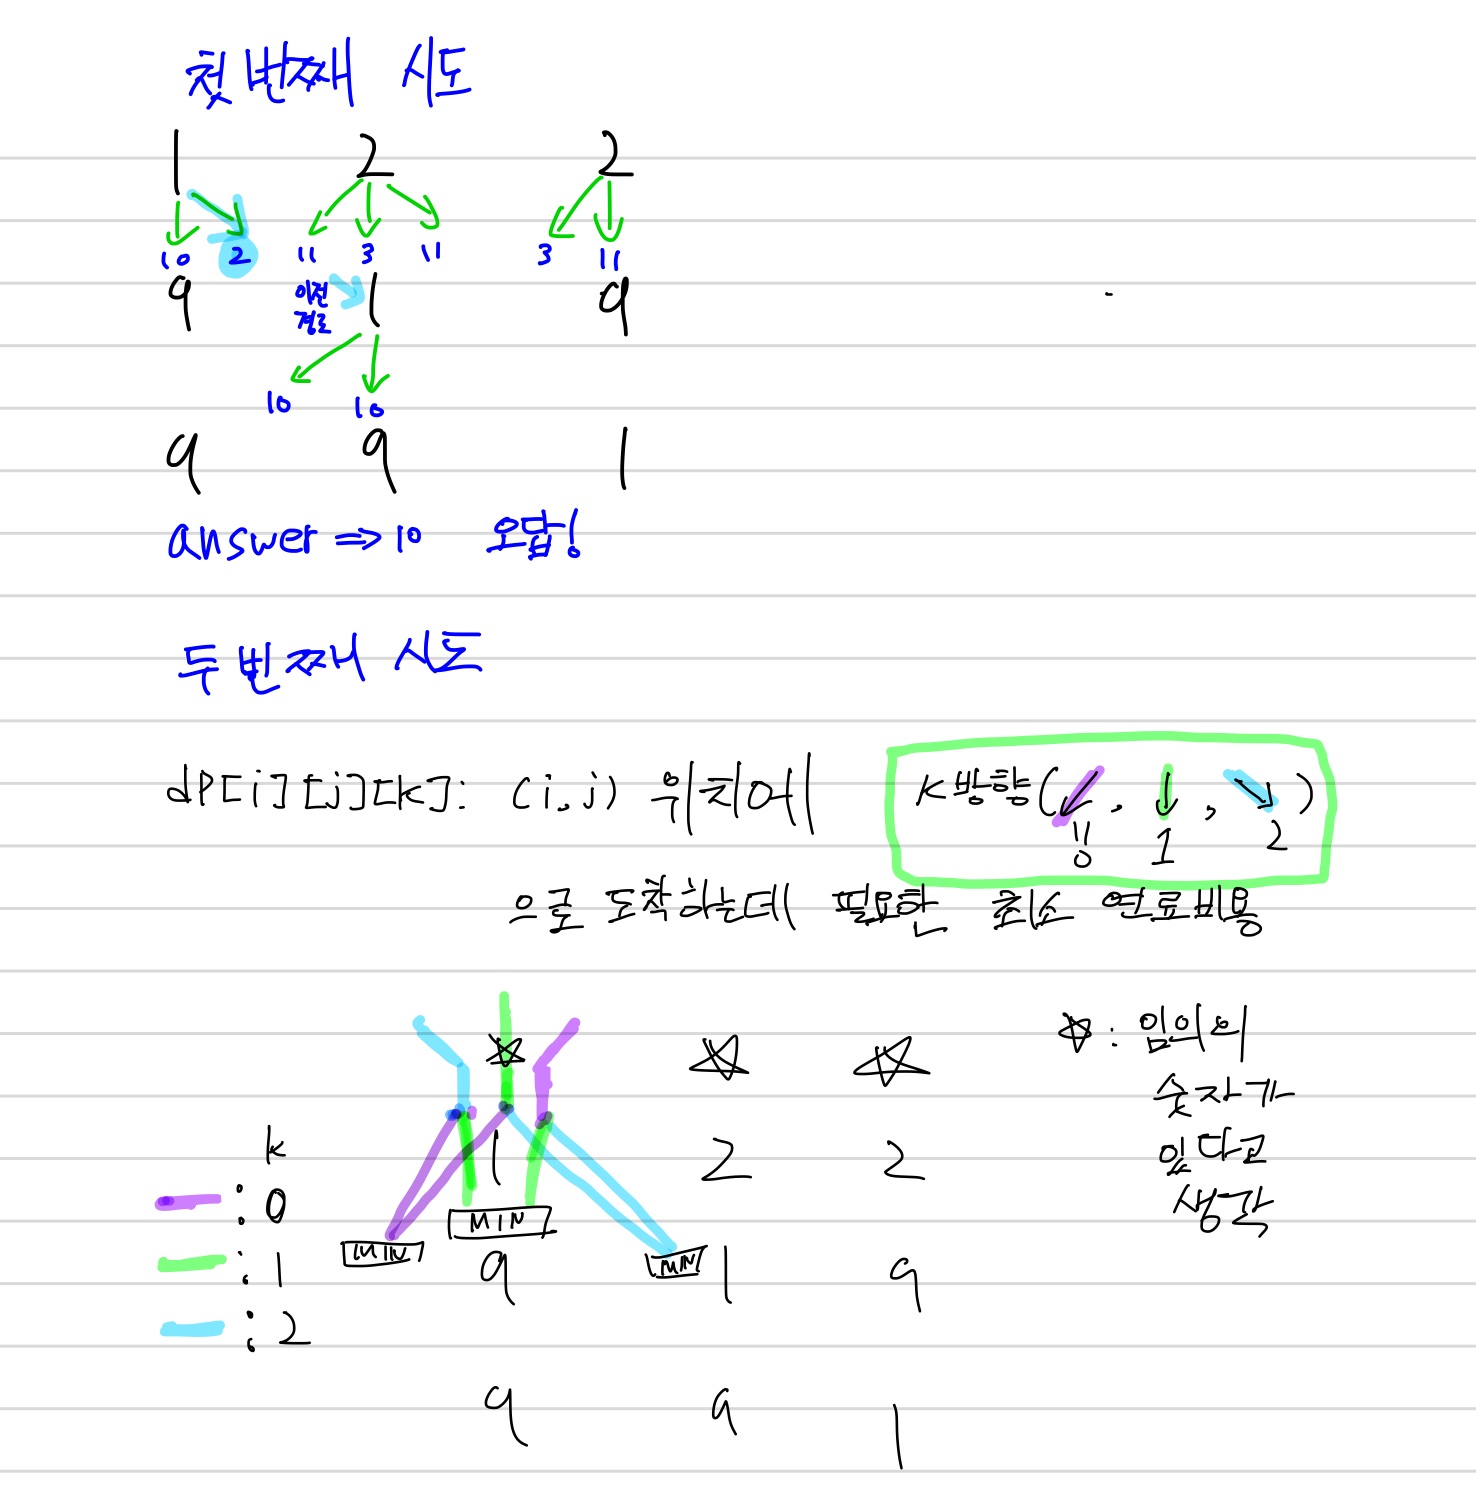 첫번째 시도
1 2 2
10 2 11 3 11 3 11
9 이전 1 9
경로
10 10
9 9 1
answer => 10 오답!
두번째 시도
dp[i][j][k]: (i,j) 위치에 K방향(↙, ↓, ↘)
0 1 2
으로 도착하는데 필요한 최소 연료비용
☆ ☆ ☆ ☆: 임의의
숫자가
k 1 2 2 있다고
: 0 MIN 생각
MIN MIN
: 1 9 1 9
: 2
9 9 1